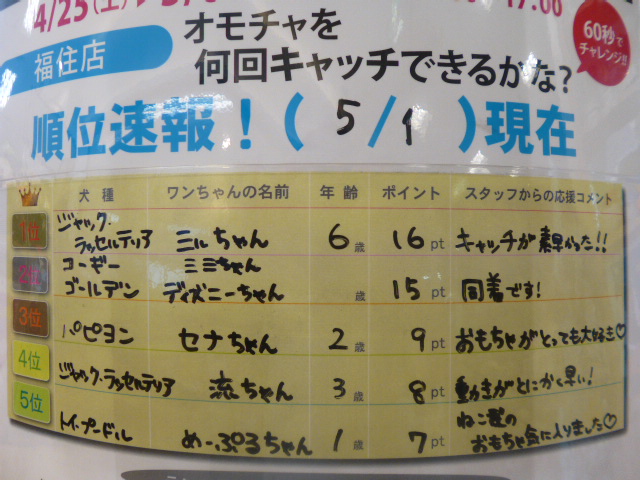 4/25(土)
福住店
オモチャを
何回キャッチできるかな?
60秒で
チャレンジ!!
順位速報!( 5/1 )現在
犬種 ワンちゃんの名前 年齢 ポイント スタッフからの応援コメント
1位 ジャック・ラッセルテリア ミルちゃん 6歳 16pt キャッチが素早かった!!
2位 コーギー ミミちゃん
ゴールデン ディズニーちゃん 歳 15pt 同着です!
3位 パピヨン セナちゃん 2歳 9pt おもちゃがとっても大好き♡
4位 ジャック・ラッセルテリア 流ちゃん 3歳 8pt 動きがとにかく早い!
5位 トイ・プードル めーぷるちゃん 1歳 7pt ねこ型のおもちゃ気に入りました♡